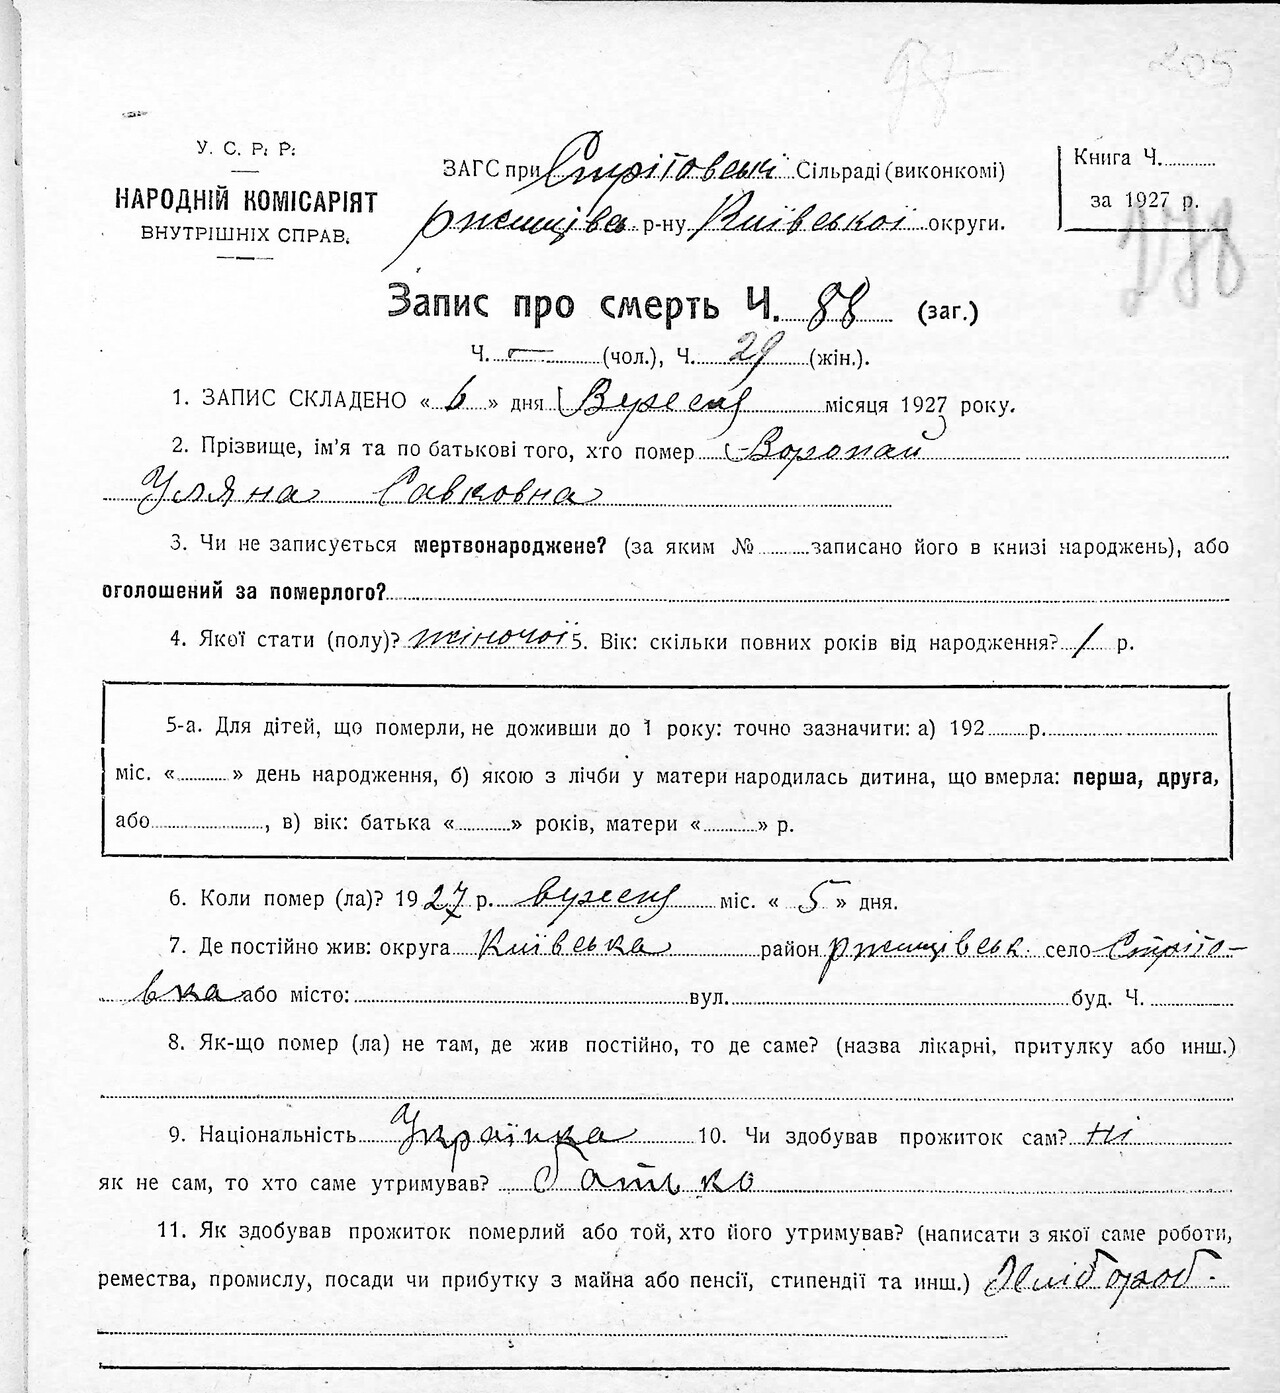 205
У. С. Р. Р.
НАРОДНІЙ КОМІСАРІЯТ
ВНУТРІШНІХ СПРАВ.
ЗАГС при Стрітовські Сільраді (виконкомі)
ржищівс р-ну Київської округи.
Книга Ч.
за 1927 р.
Запис про смерть Ч. 88 (заг.)
Ч. — (чол.), Ч. 29 (жін.).
1. ЗАПИС СКЛАДЕНО « 6 » дня Вересня місяця 1927 року.
2. Прізвище, ім'я та по батькові того, хто помер Воропай
Уляна Савковна
3. Чи не записується мертвонароджене? (за яким № записано його в книзі народжень), або
оголошений за померлого?
4. Якої стати (полу)? жіночої 5. Вік: скільки повних років від народження? 1 р.
5-а. Для дітей, що померли, не доживши до 1 року: точно зазначити: а) 192 р.
міс. « » день народження, б) якою з лічби у матери народилась дитина, що вмерла: перша, друга,
або , в) вік: батька « » років, матери « » р.
6. Коли помер (ла)? 1927 р. вересня міс. « 5 » дня.
7. Де постійно жив: округа Київська район ржищівськ. село Стріто-
вка або місто: вул. буд. Ч.
8. Як-що помер (ла) не там, де жив постійно, то де саме? (назва лікарні, притулку або инш.)
9. Національність Українка 10. Чи здобував прожиток сам? ні
як не сам, то хто саме утримував? батько
11. Як здобував прожиток померлий або той, хто його утримував? (написати з якої саме роботи,
ремества, промислу, посади чи прибутку з майна або пенсії, стипендії та инш.) Хлібороб.